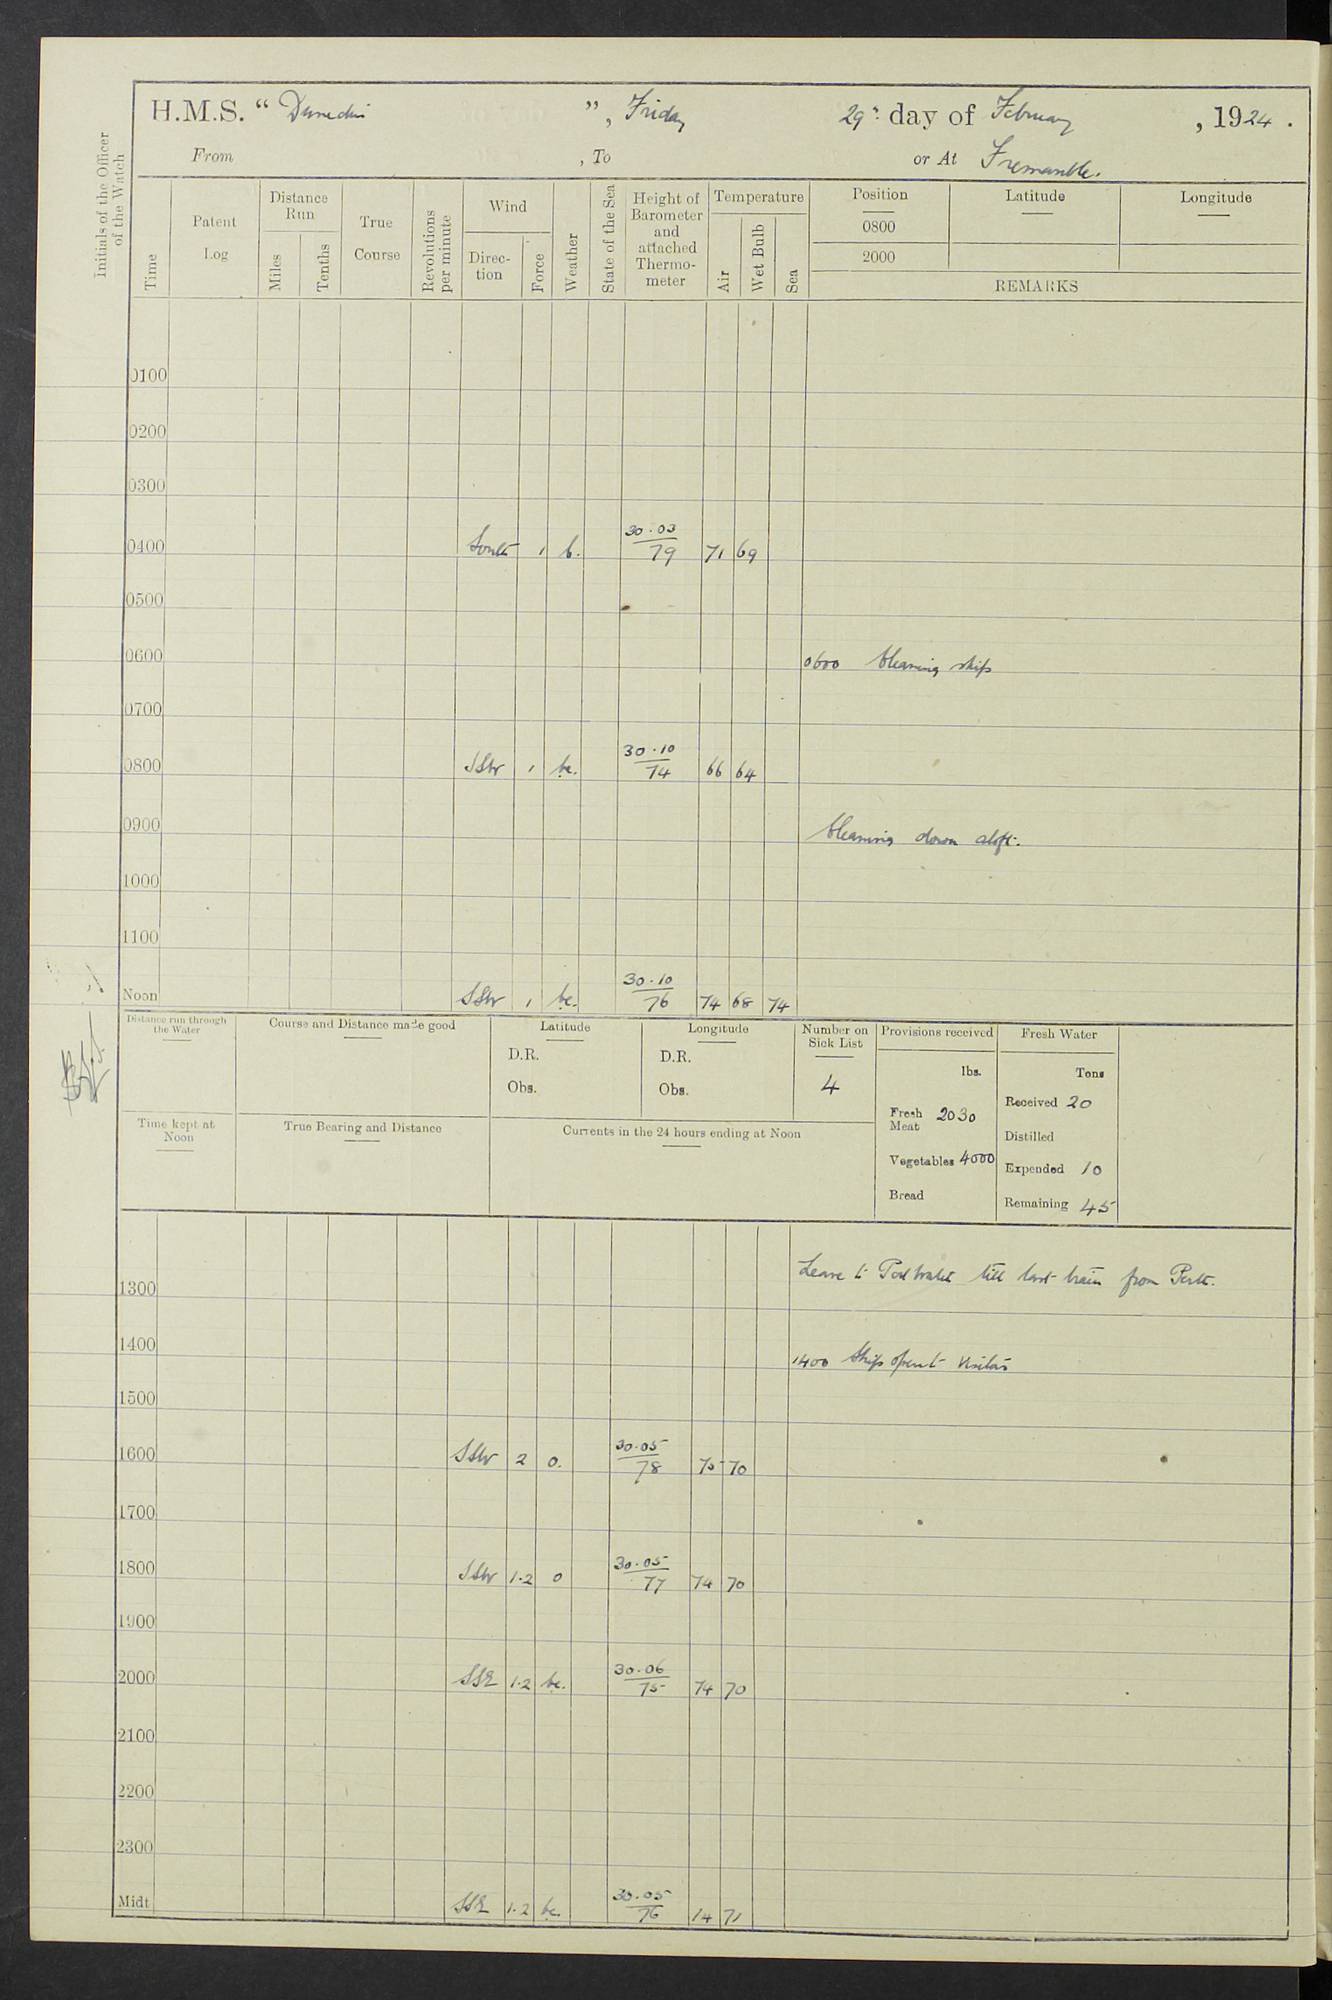 H.M.S. “ Dunedin ”, Friday 29th day of February , 1924 .
From , To or At Fremantle.
Initials of the Officer of the Watch
Time
Patent Log
Distance Run
Miles
Tenths
True Course
Revolutions per minute
Wind
Direction
Force
Weather
State of the Sea
Height of Barometer and attached Thermometer
Temperature
Air
Wet Bulb
Sea
Position Latitude Longitude
0800
2000
REMARKS
0100
0200
0300
0400 South 1 b. 30.03 79 71 69
0500
0600 0600 Cleaning ship
0700
0800 SSW 1 bc. 30.10 74 66 64
0900 Cleaning down aloft.
1000
1100
Noon SSW 1 bc. 30.10 76 74 68 74
Distance run through the Water
Course and Distance made good
Latitude
D.R.
Obs.
Longitude
D.R.
Obs.
Number on Sick List
4
Provisions received
lbs.
Fresh Meat 2030
Vegetables 4000
Bread
Fresh Water
Tons
Received 20
Distilled
Expended 10
Remaining 45
Time kept at Noon
True Bearing and Distance
Currents in the 24 hours ending at Noon
Leave to Port Watch till last train from Perth.
1300
1400 1400 Ship open to visitors
1500
1600 SSW 2 o. 30.05 78 75 70
1700
1800 SSW 1.2 o 30.05 77 74 70
1900
2000 SSE 1.2 bc. 30.06 75 74 70
2100
2200
2300
Midt SSE 1.2 bc. 30.05 76 74 71